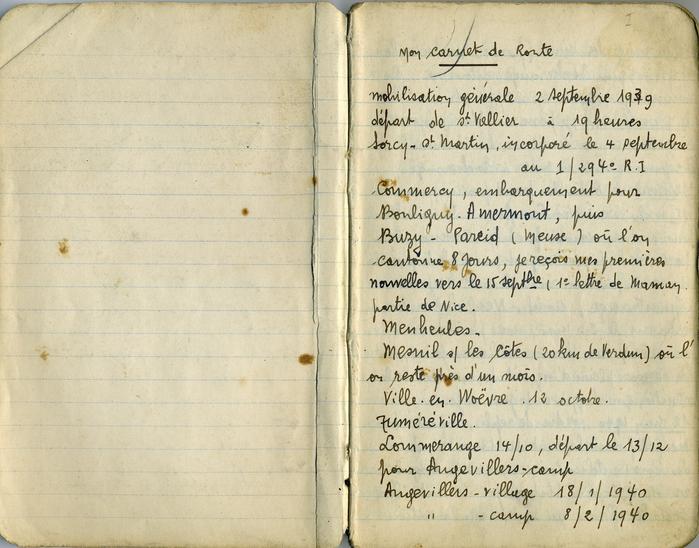 I
Mon carnet de Route
mobilisation générale 2 septembre 1939
départ de St Vallier à 19 heures
Sorcy-St Martin, incorporé le 4 septembre
au 1/294e R.I
Commercy, embarquement pour
Bouligny-Amermont, puis
Buzy - Pareid (Meuse) où l'on
cantonne 8 jours, je reçois mes premières
nouvelles vers le 15 septbre (1e lettre de Maman
partie de Nice.
Menheules.
Mesnil s/ les Côtes (20 km de Verdun) où l'
on reste près d'un mois.
Ville. en. Woëvre . 12 octobre.
Fuméréville.
Lommerange 14/10, départ le 13/12
pour Angevillers-camp
Angevillers-village 18/1/1940
" -camp 8/2/1940